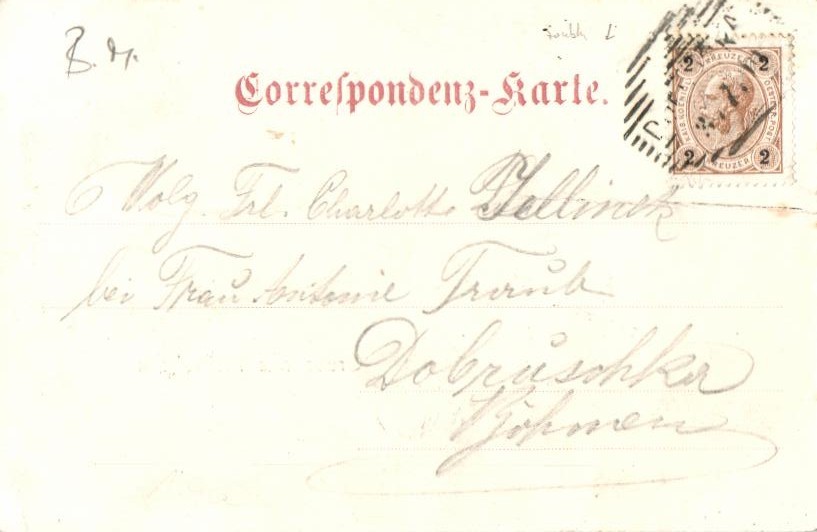 Correspondenz-Karte.
2 KREUZER 2
2 KREUZER 2
Wolg. Frl. Charlotte Jellinek
bei Frau Antonie Traub
Dobruschka
Böhmen